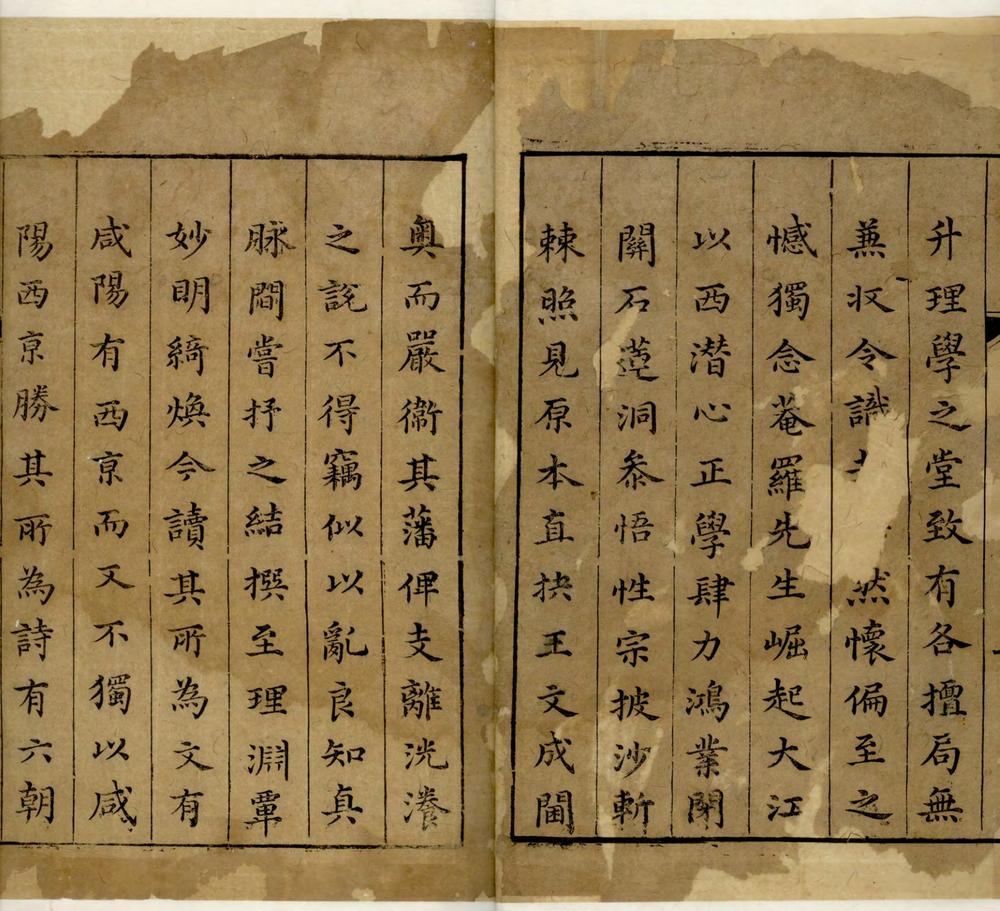 升理學之堂致有各擅局無
兼収令識 然懷偏至之
憾獨念菴羅先生崛起大江
以西潛心正學肆力鴻業閉
關石蓮洞叅悟性宗披沙斬
棘照見原本直抉王文成閫
奧而嚴衞其藩俾支離洸瀁
之說不得竊似以亂良知真
脉間嘗抒之結撰至理淵覃
妙明綺煥今讀其所為文有
咸陽有西亰而又不獨以咸
陽西亰勝其所為詩有六朝